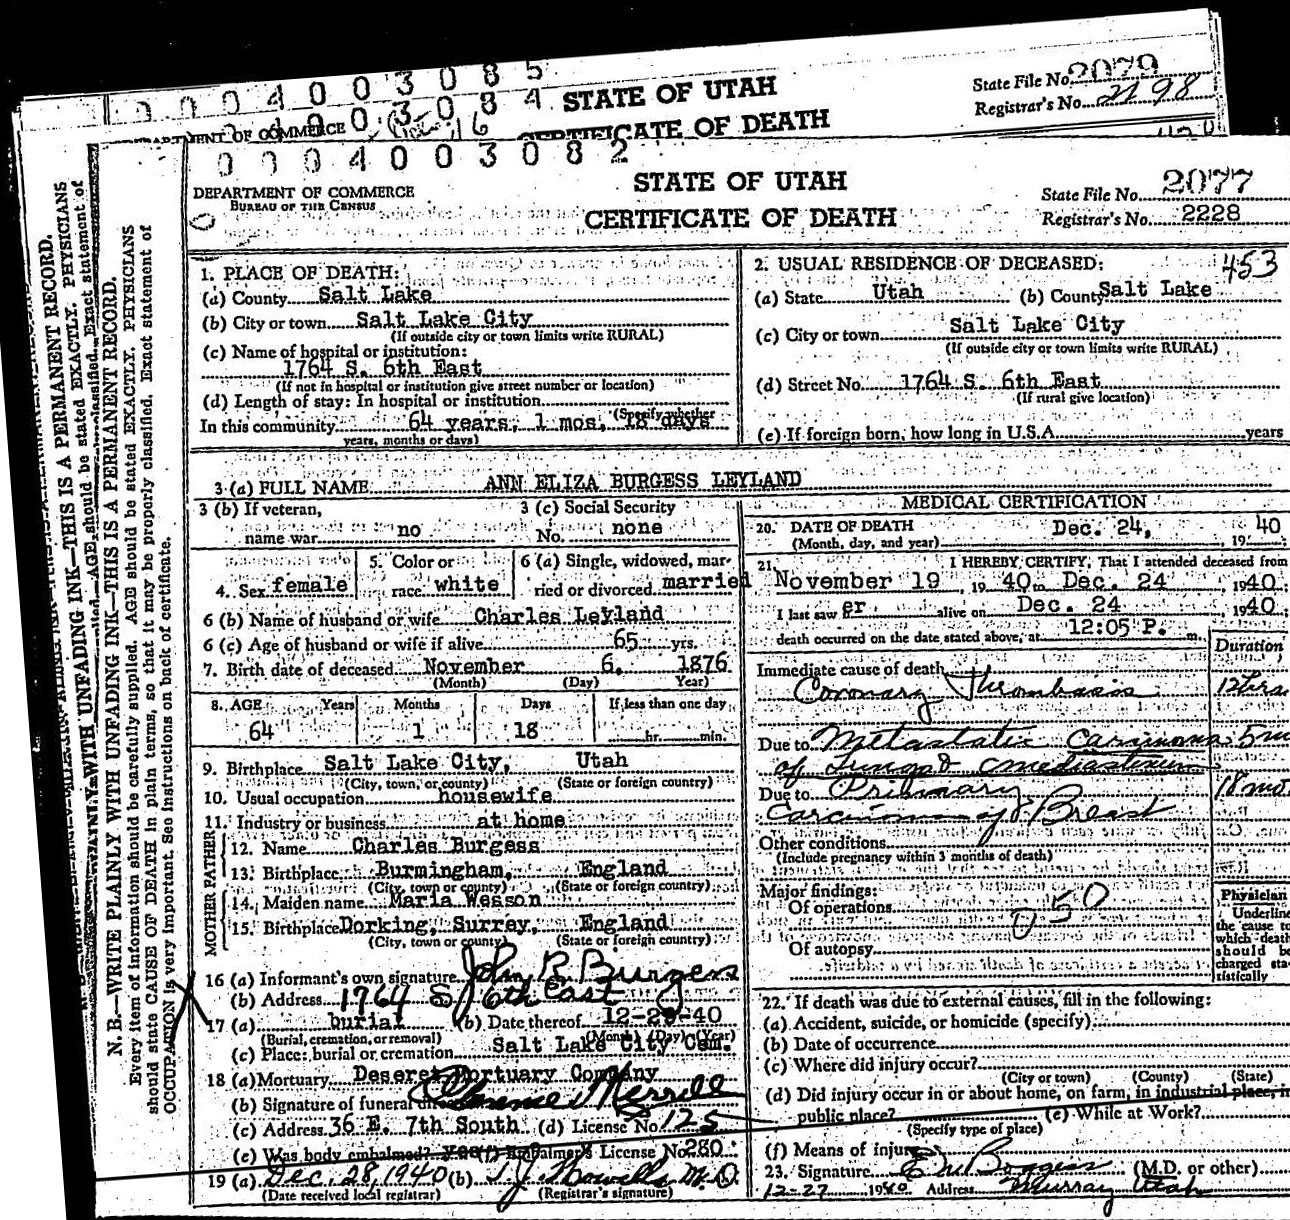 0 0 0 4 0 0 3 0 8 5
4 0 0 3 0 8 4
STATE OF UTAH
CERTIFICATE OF DEATH
DEPARTMENT OF COMMERCE
State File No. 2079
Registrar's No. 2198
0 0 0 4 0 0 3 0 8 2
DEPARTMENT OF COMMERCE
BUREAU OF THE CENSUS
STATE OF UTAH
CERTIFICATE OF DEATH
State File No. 2077
Registrar's No. 2228
N. B.—WRITE PLAINLY WITH UNFADING INK—THIS IS A PERMANENT RECORD.
Every item of information should be carefully supplied. AGE should be stated EXACTLY. PHYSICIANS
should state CAUSE OF DEATH in plain terms, so that it may be properly classified. Exact statement of
OCCUPATION is very important. See instructions on back of certificate.
1. PLACE OF DEATH:
(a) County Salt Lake
(b) City or town Salt Lake City
(If outside city or town limits write RURAL)
(c) Name of hospital or institution:
1764 S. 6th East
(If not in hospital or institution give street number or location)
(d) Length of stay: In hospital or institution
(Specify whether
In this community 64 years, 1 mos, 18 days
years, months or days)
2. USUAL RESIDENCE OF DECEASED: 453
(a) State Utah (b) County Salt Lake
(c) City or town Salt Lake City
(If outside city or town limits write RURAL)
(d) Street No. 1764 S. 6th East
(If rural give location)
(e) If foreign born, how long in U.S.A. years
3 (a) FULL NAME ANN ELIZA BURGESS LEYLAND
3 (b) If veteran,
name war no
3 (c) Social Security
No. none
4. Sex female
5. Color or
race white
6 (a) Single, widowed, mar-
ried or divorced married
6 (b) Name of husband or wife Charles Leyland
6 (c) Age of husband or wife if alive 65 yrs.
7. Birth date of deceased November 6, 1876
(Month) (Day) Year)
8. AGE Years Months Days If less than one day
64 1 18 hr. min.
9. Birthplace Salt Lake City, Utah
(City, town, or county) (State or foreign country)
10. Usual occupation housewife
11. Industry or business at home
FATHER
12. Name Charles Burgess
13. Birthplace Burmingham, England
(City, town or county) (State or foreign country)
MOTHER
14. Maiden name Maria Wesson
15. Birthplace Dorking, Surrey, England
(City, town or county) (State or foreign country)
16 (a) Informant's own signature John B Burgess
(b) Address 1764 S 6th East
17 (a) burial (b) Date thereof 12-28-40
(Burial, cremation, or removal) (Month) (Day) (Year)
(c) Place: burial or cremation Salt Lake City Cem.
18 (a) Mortuary Deseret Mortuary Company
(b) Signature of funeral director Clarence Merrill
(c) Address 36 E. 7th South (d) License No. 125
(e) Was body embalmed? yes (f) Embalmer's License No. 280
19 (a) Dec. 28, 1940 (b) M.D.
(Date received local registrar) (Registrar's signature)
MEDICAL CERTIFICATION
20. DATE OF DEATH Dec. 24, 1940
(Month, day, and year)
21. I HEREBY CERTIFY, That I attended deceased from
November 19, 1940 to Dec. 24, 1940
I last saw er alive on Dec. 24 1940
death occurred on the date stated above, at 12:05 P. m.
Duration
Immediate cause of death
Coronary Thrombosis 12 hrs
Due to Metastatic Carcinoma 5 m
of Lungs & mediastinum
Due to Primary 18 mo
Carcinoma of Breast
Other conditions
(Include pregnancy within 3 months of death)
Major findings:
Of operations
050
Of autopsy
Physician
Underline
the cause to
which death
should be
charged sta-
tistically
22. If death was due to external causes, fill in the following:
(a) Accident, suicide, or homicide (specify)
(b) Date of occurrence
(c) Where did injury occur?
(City or town) (County) (State)
(d) Did injury occur in or about home, on farm, in industrial place, in
public place? (e) While at Work?
(Specify type of place)
(f) Means of injury
23. Signature (M.D. or other)
12-27 1940 Address Murray Utah